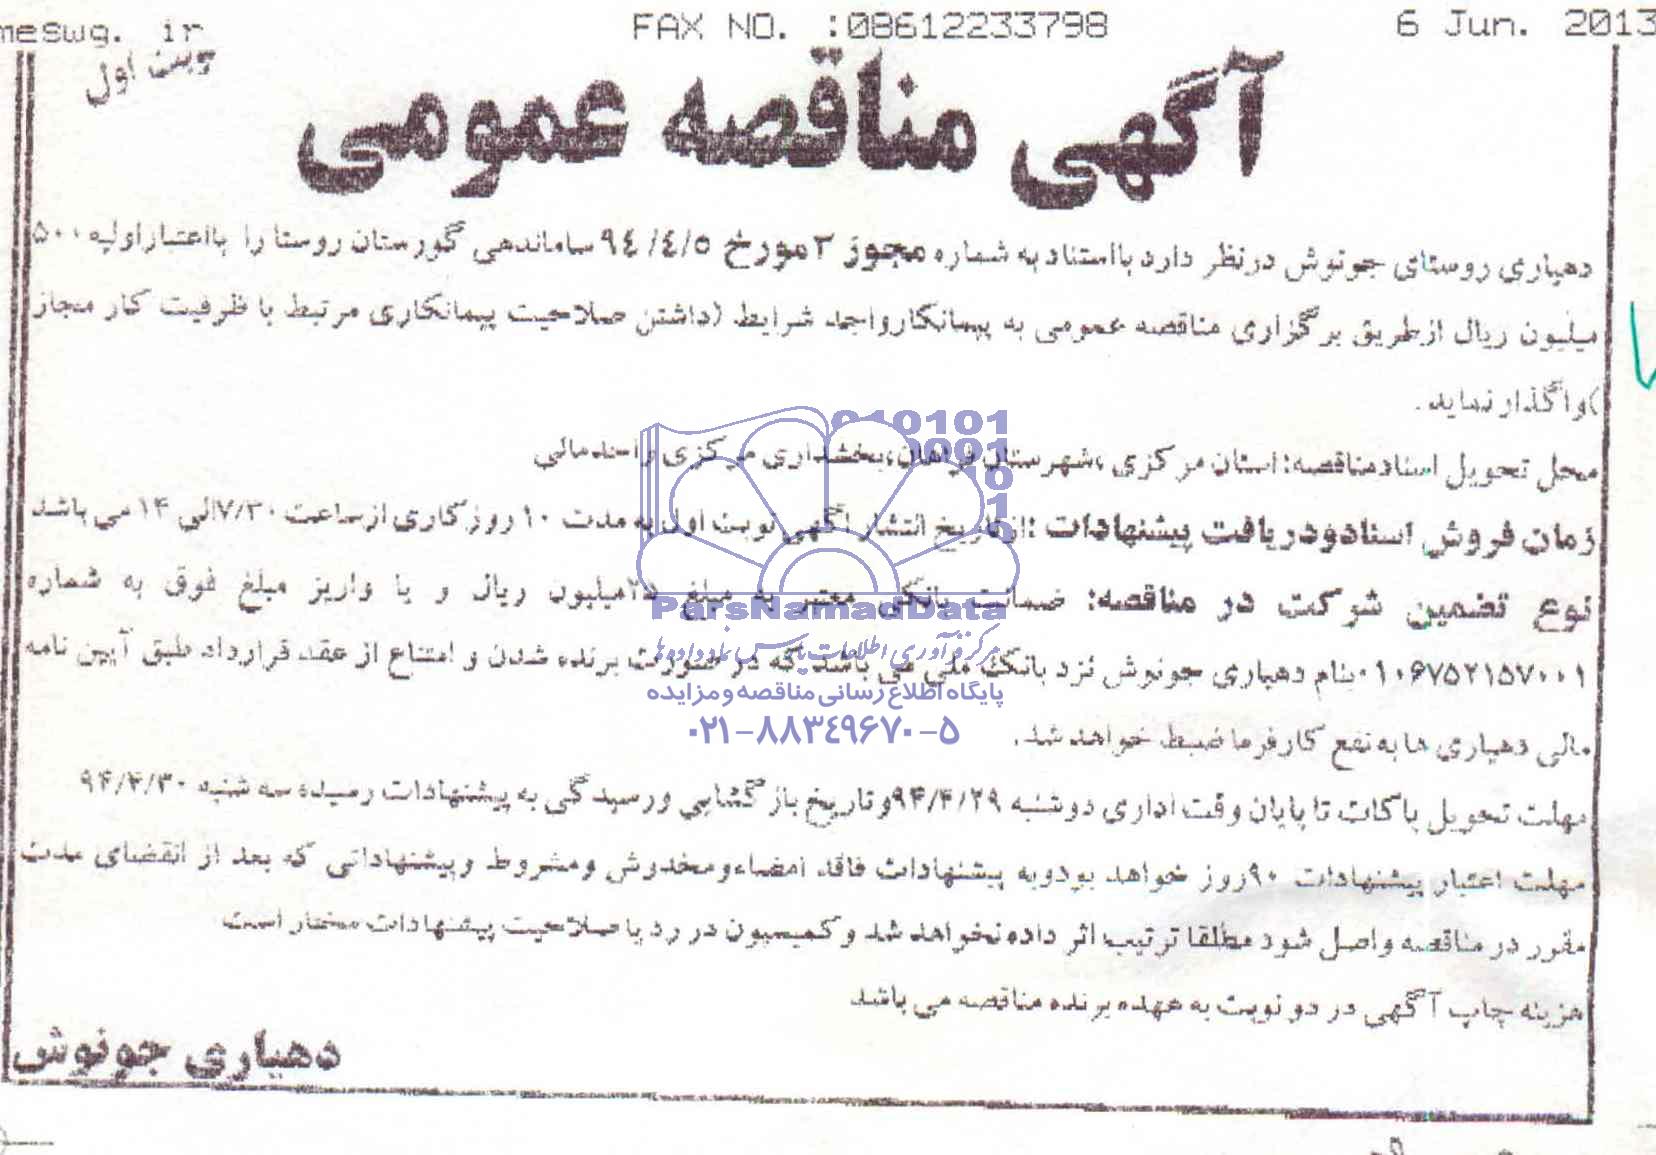 meswg. ir FAX NO. :08612233798 6 Jun. 2013
نوبت اول
آگهی مناقصه عمومی
دهیاری روستای جونوش درنظر دارد بااستناد به شماره مجوز ۳مورخ ۹٤/٤/٥ ساماندهی گورستان روستا را بااعتباراولیه ۵۰۰
میلیون ریال ازطریق برگزاری مناقصه عمومی به پیمانکارواجد شرایط (داشتن صلاحیت پیمانکاری مرتبط با ظرفیت کار مجاز
)واگذارنماید.
محل تحویل اسنادمناقصه: استان مرکزی ،شهرستان فراهان،بخشداری مرکزی واحدمالی
زمان فروش اسنادودریافت پیشنهادات :ازتاریخ انتشار آگهی نوبت اول به مدت ۱۰ روزکاری ازساعت ۷/۳۰الی ۱۴ می باشد
نوع تضمین شرکت در مناقصه: ضمانت بانکی معتبر به مبلغ ۲۵میلیون ریال و یا واریز مبلغ فوق به شماره
۰۱۰۶۷۵۲۱۵۷۰۰۱بنام دهیاری جونوش نزد بانک ملی می باشد.که در صورت برنده شدن و امتناع از عقد قرارداد طبق آیین نامه
مالی دهیاری ها به نفع کارفرما ضبط خواهد شد.
مهلت تحویل پاکات تا پایان وقت اداری دوشنبه ۹۴/۴/۲۹وتاریخ بازگشایی ورسیدگی به پیشنهادات رسیده سه شنبه ۹۴/۴/۳۰
مهلت اعتبار پیشنهادات ۹۰روز خواهد بودوبه پیشنهادات فاقد امضاءومخدوش ومشروط وپیشنهاداتی که بعد از انقضای مدت
مقرر در مناقصه واصل شود مطلقا ترتیب اثر داده نخواهد شد وکمیسیون در رد یا صلاحیت پیشنهادات مختار است
هزینه چاپ آگهی در دو نوبت به عهده برنده مناقصه می باشد
دهیاری جونوش
ParsNamadData
مرکز فرآوری اطلاعات پارس نماد داده ها
پایگاه اطلاع رسانی مناقصه و مزایده
۰۲۱-۸۸۳۴۹۶۷۰-۵